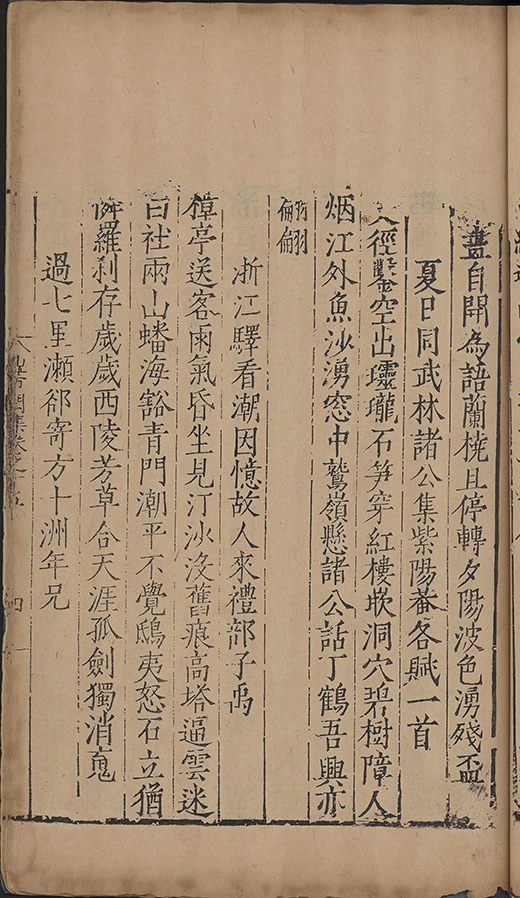 畫自開為語蘭橈且停轉夕陽波色湧殘盃
夏日同武林諸公集紫陽菴各賦一首
徑鑿空出瓏石笋穿紅樓嵌洞穴碧樹障人
烟江外魚沙湧窓中鷲嶺懸諸公話丁鶴吾興亦
翩翩
浙江驛看潮因憶故人來禮部子禹
樟亭送客雨氣昏坐見汀沙沒舊痕高塔逼雲迷
白社兩山蟠海豁青門潮平不覺鴟夷怒石立猶
憐羅刹存歲歲西陵芳草合天涯孤劍獨消䰟
過七里瀨郤寄方十洲年兄
四